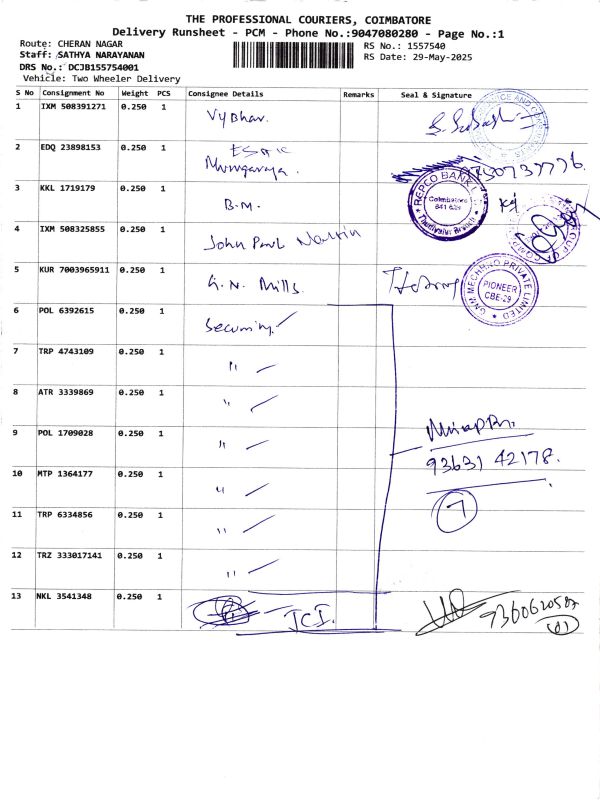 THE PROFESSIONAL COURIERS, COIMBATORE
Delivery Runsheet - PCM - Phone No.:9047080280 - Page No.:1
Route: CHERAN NAGAR
Staff: SATHYA NARAYANAN
DRS No.: DCJB155754001
Vehicle: Two Wheeler Delivery
RS No.: 1557540
RS Date: 29-May-2025
S No Consignment No Weight PCS Consignee Details Remarks Seal & Signature
1 IXM 508391271 0.250 1 Vybhav.
2 EDQ 23898153 0.250 1
3 KKL 1719179 0.250 1 B.M.
REPCO BANK
Coimbatore
641 029
4 IXM 508325855 0.250 1 John Paul
5 KUR 7003965911 0.250 1 G.N. Mills.
G.N.M. MECHANO PRIVATE LIMITED
PIONEER
CBE-29
6 POL 6392615 0.250 1
7 TRP 4743109 0.250 1 "
8 ATR 3339869 0.250 1 "
9 POL 1709028 0.250 1 "
93631 42178.
10 MTP 1364177 0.250 1 "
7
11 TRP 6334856 0.250 1 "
12 TRZ 333017141 0.250 1 "
13 NKL 3541348 0.250 1 JCI.
9360620587
01